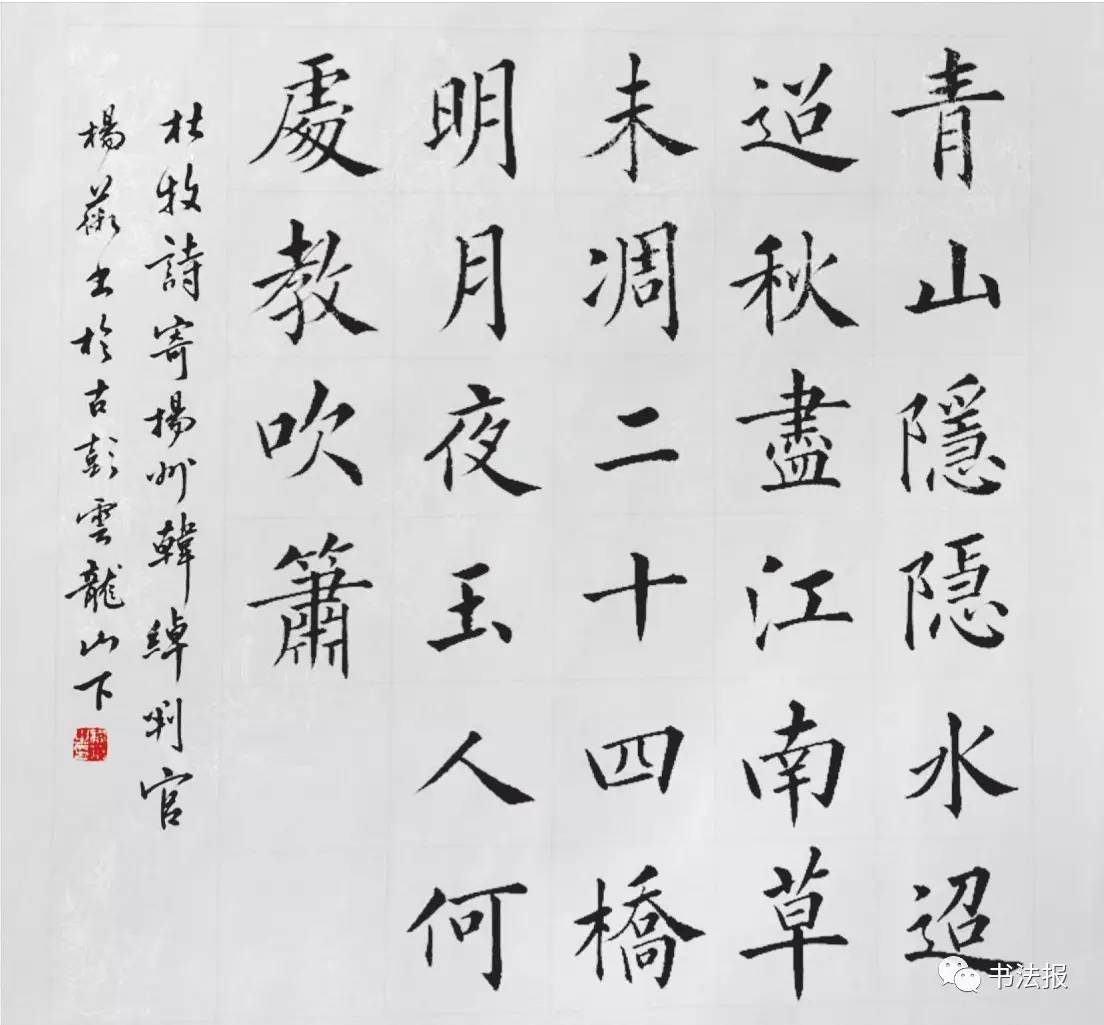 青山隱隱水迢
迢秋盡江南草
未凋二十四橋
明月夜玉人何
處教吹簫
杜牧詩寄揚州韓綽判官
楊薇書於古彭雲龍山下
书法报